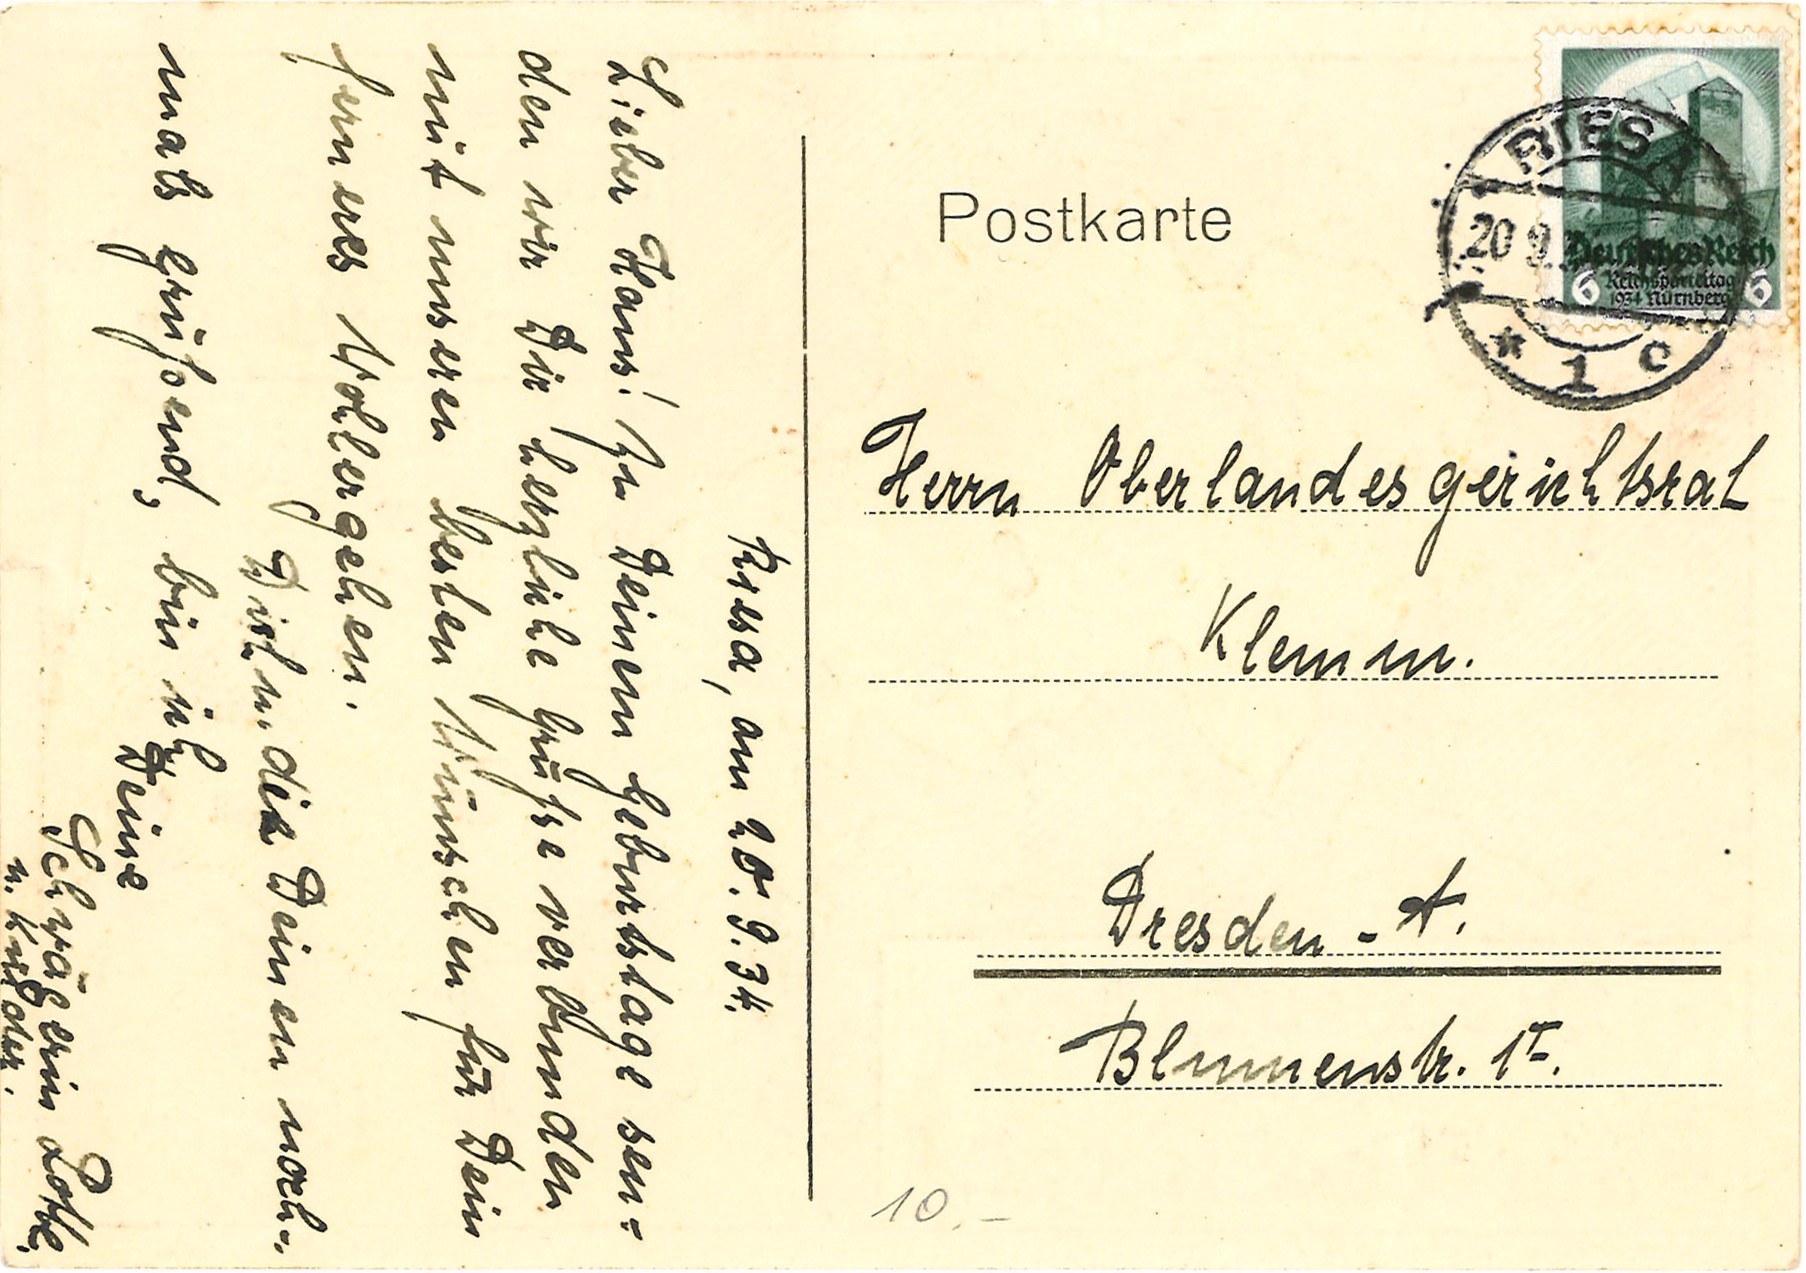 Riesa, am 20. 9. 34.
Lieber Hans! Zu Deinem Geburtstage sen=
den wir Dir herzliche Grüße verbunden
mit unseren besten Wünschen für Dein
ferneres Wohlergehen.
Dich u. die Deinen noch-
mals grüßend, bin ich
Deine
Schwägerin Lotte
u. Kinder.
Postkarte
RIESA
20 9.
* 1 c
Deutsches Reich
Reichsparteitag
1934 Nürnberg
6 6
Herrn Oberlandesgerichtsrat
Klemm.
Dresden - A.
Blumenstr. 1
10.-